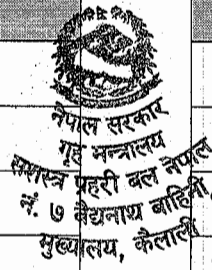 नेपाल सरकार
गृह मन्त्रालय
सशस्त्र प्रहरी बल नेपाल
नं. ७ बैद्यनाथ बाहिनी,
मुख्यालय, कैलाली